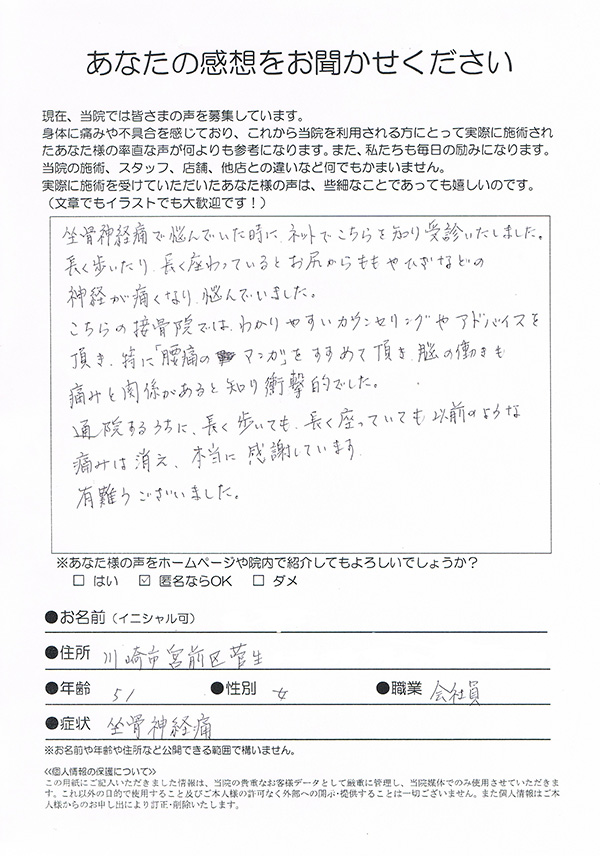 あなたの感想をお聞かせください
現在、当院では皆さまの声を募集しています。
身体に痛みや不具合を感じており、これから当院を利用される方にとって実際に施術され
たあなた様の率直な声が何よりも参考になります。また、私たちも毎日の励みになります。
当院の施術、スタッフ、店舗、他店との違いなど何でもかまいません。
実際に施術を受けていただいたあなた様の声は、些細なことであっても嬉しいのです。
（文章でもイラストでも大歓迎です！）
坐骨神経痛で悩んでいた時に、ネットでこちらを知り受診いたしました。
長く歩いたり、長く座わっているとお尻からももやひざなどの
神経が痛くなり、悩んでいました。
こちらの接骨院では、わかりやすいカウンセリングやアドバイスを
頂き、特に「腰痛のマンガ」をすすめて頂き、脳の働きも
痛みと関係があると知り衝撃的でした。
通院するうちに、長く歩いても、長く座っていても以前のような
痛みは消え、本当に感謝しています。
有難うございました。
※あなた様の声をホームページや院内で紹介してもよろしいでしょうか？
☐ はい ☑ 匿名ならOK ☐ ダメ
●お名前（イニシャル可）
●住所 川崎市宮前区菅生
●年齢 51 ●性別 女 ●職業 会社員
●症状 坐骨神経痛
※お名前や年齢や住所など公開できる範囲で構いません。
≪個人情報の保護について≫
この用紙にご記入いただきました情報は、当院の貴重なお客様データとして厳重に管理し、当院媒体でのみ使用させていただきま
す。これ以外の目的で使用すること及びご本人様の許可なく外部への開示・提供することは一切ございません。また個人情報はご本
人様からのお申し出により訂正・削除いたします。